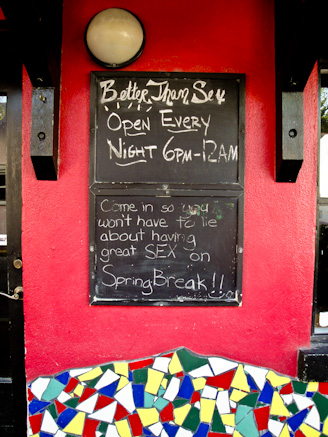 Better Than Sex
Open Every
Night 6pm-12am
Come in so you
won't have to lie
about having
great SEX on
Spring Break!!